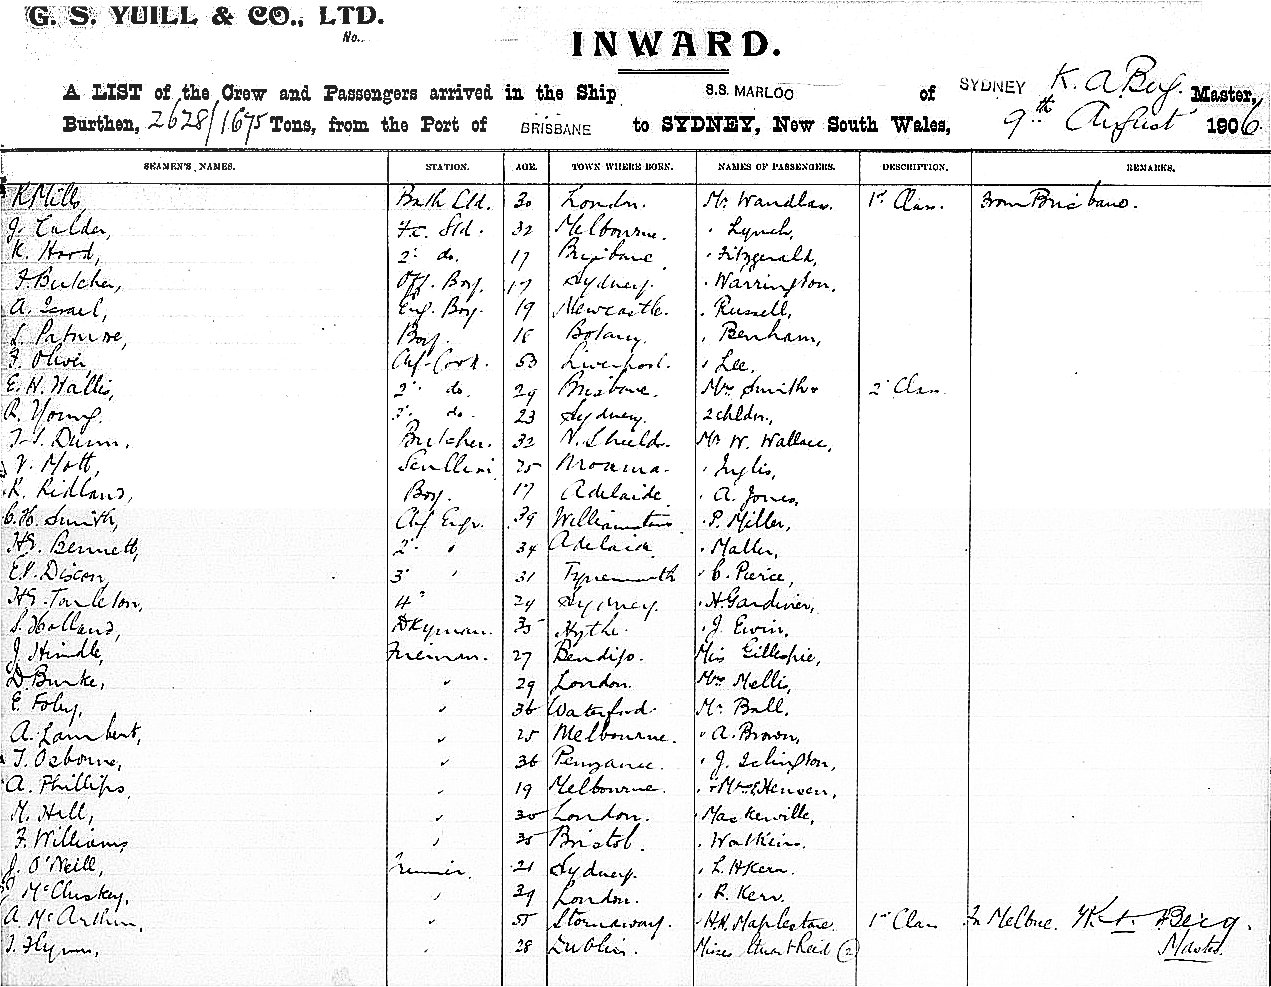 G. S. YUILL & CO., LTD.
No.
INWARD.
A LIST of the Crew and Passengers arrived in the Ship S.S. MARLOO of SYDNEY K. A. Berg. Master,
Burthen, 2628/1675 Tons, from the Port of BRISBANE to SYDNEY, New South Wales, 9th August 1906.
SEAMEN'S NAMES. STATION. AGE. TOWN WHERE BORN. NAMES OF PASSENGERS. DESCRIPTION. REMARKS.
K Mills, 30 London. Mr Wandlaw. 1st Class. From Brisbane.
J. Calder, 32 Melbourne. " Lynch,
K. Hood, 2" do. 17 Brisbane " Fitzgerald,
F. Butcher, Off. Boy. 17 Sydney. " Warrington,
A. Israel, Eng. Boy. 19 Newcastle. " Russell,
L. Patmore, Boy. 16 Botany. " Benham,
F. Oliver, Chf Cook. 53 Liverpool. " Lee,
E. H. Wallis, 2" do. 29 Brisbane. Mrs Smith & 2" Class.
R. Young. 3" do. 23 Sydney. 2 chldn,
T. S. Dunn, Butcher. 32 N. Shields. Mr W. Wallace,
V. Mott, 25 Moama. " Inglis,
R. Ridland, Boy. 17 Adelaide " A. Jones,
C. H. Smith, Chf Engr. 39 Williamstown " P. Miller,
Hy. Bennett, 2" " 34 Adelaide. " Maller,
31 Tynemouth " C. Pierce,
Hy. Tarleton, 4" 24 Sydney. " H. Gardiner,
S. Holland, Dkyman. 35 Hythe. " J. Ewin,
J. Hindle, Fireman. 27 Bendigo. Miss Gillespie,
D. Burke, " 29 London. Mrs Mellis,
E. Foley, " 36 Waterford. Mr Ball.
A. Lambert, " 25 Melbourne. " A. Brown,
T. Osborne, " 36 Penzance. " J. Islington,
A. Phillips, " 19 Melbourne.
M. Hill, " 30 London. " Maskerville,
F. Williams, " 35 Bristol. " Watkins.
J. O'Neill, Trimmer. 21 Sydney.
J McCluskey, " 39 London. " R. Kerr.
A. McArthur, " 55 Stornaway. " H. H. Maplestone. 1st Class Fr Melbne. Berg.
J. Flynn, " 28 Dublin. Misses Stuart Reid (2) Master.